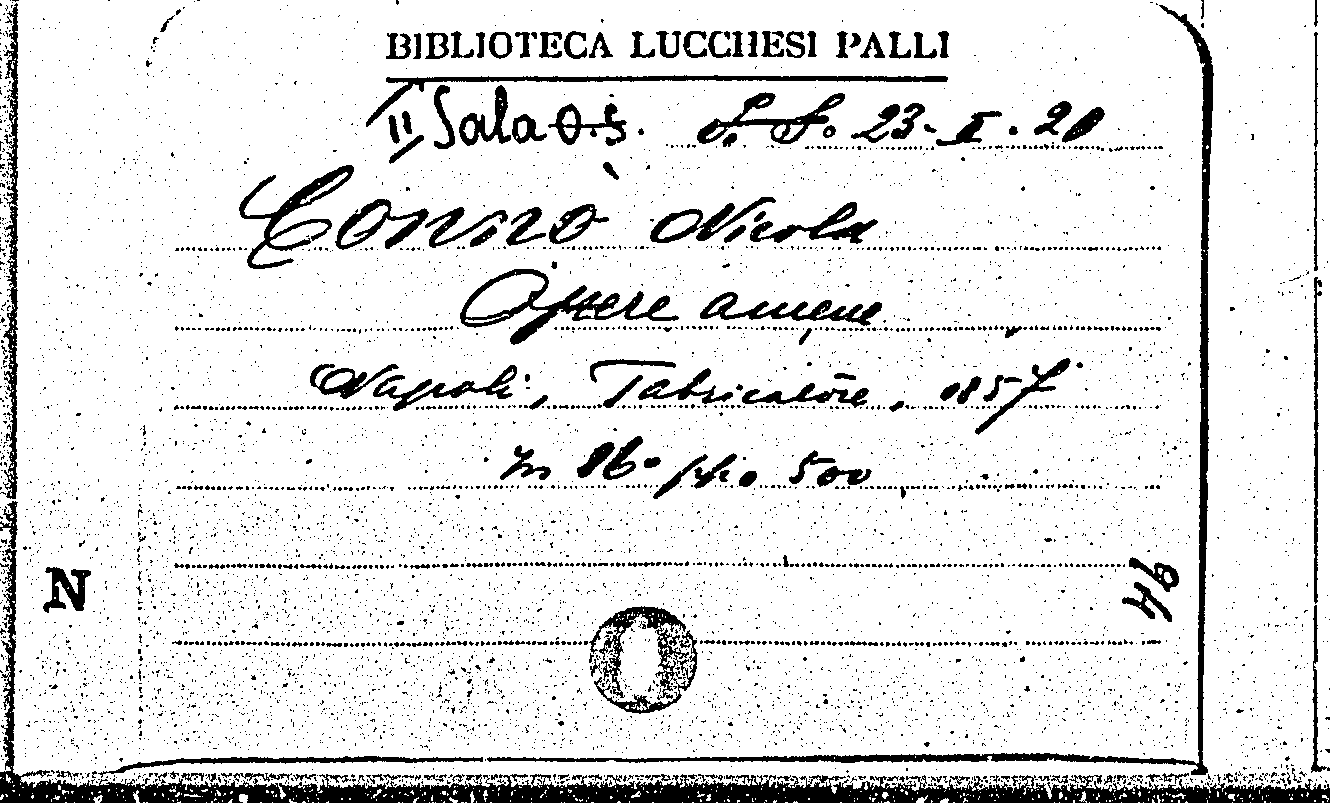 BIBLIOTECA LUCCHESI PALLI
II Sala O.S. S. S. 23-II.20
Conino Nicola
Opere amene
Napoli, Fabricatore, 1857
In 16º pp. 500
N